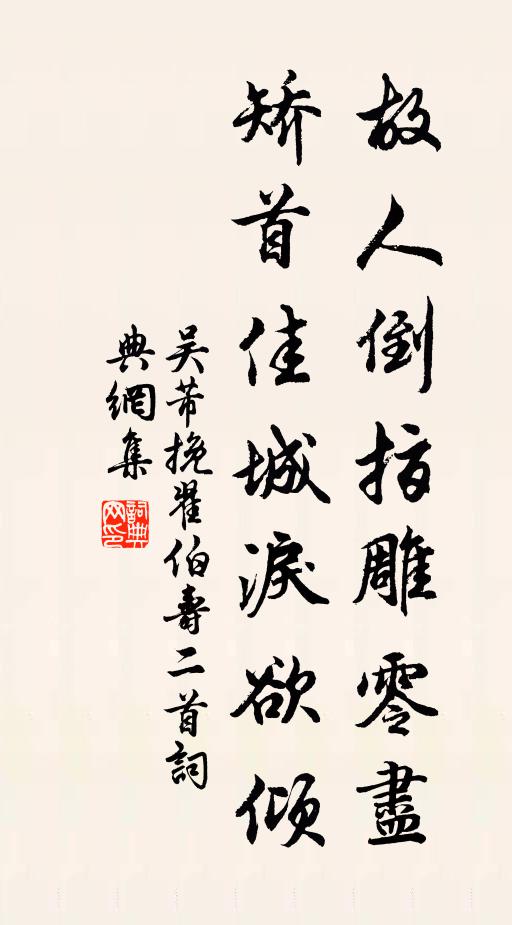 故人倒指雕零盡
矯首佳城淚欲傾
吴芾挽翟伯壽二首詞
典網集
詞典網印